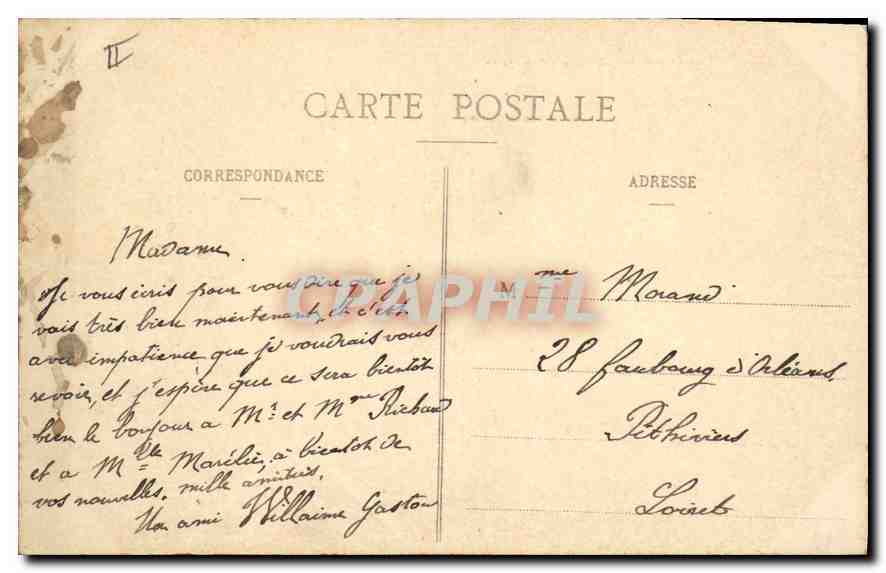 II
CARTE POSTALE
CORRESPONDANCE
ADRESSE
Madame
Je vous écris pour vous dire que je
vais très bien maintenant, et c'est
avec impatience que je voudrais vous
revoir, et j'espère que ce sera bientôt
bien le bonjour a Mr et Mme Richard
et a Mlle Marélie, à bientot de
vos nouvelles, mille amitiés.
Un ami Willaime Gaston
Mme Morand
28 faubourg d'Orléans,
Pithiviers
Loiret
CRAPHIL